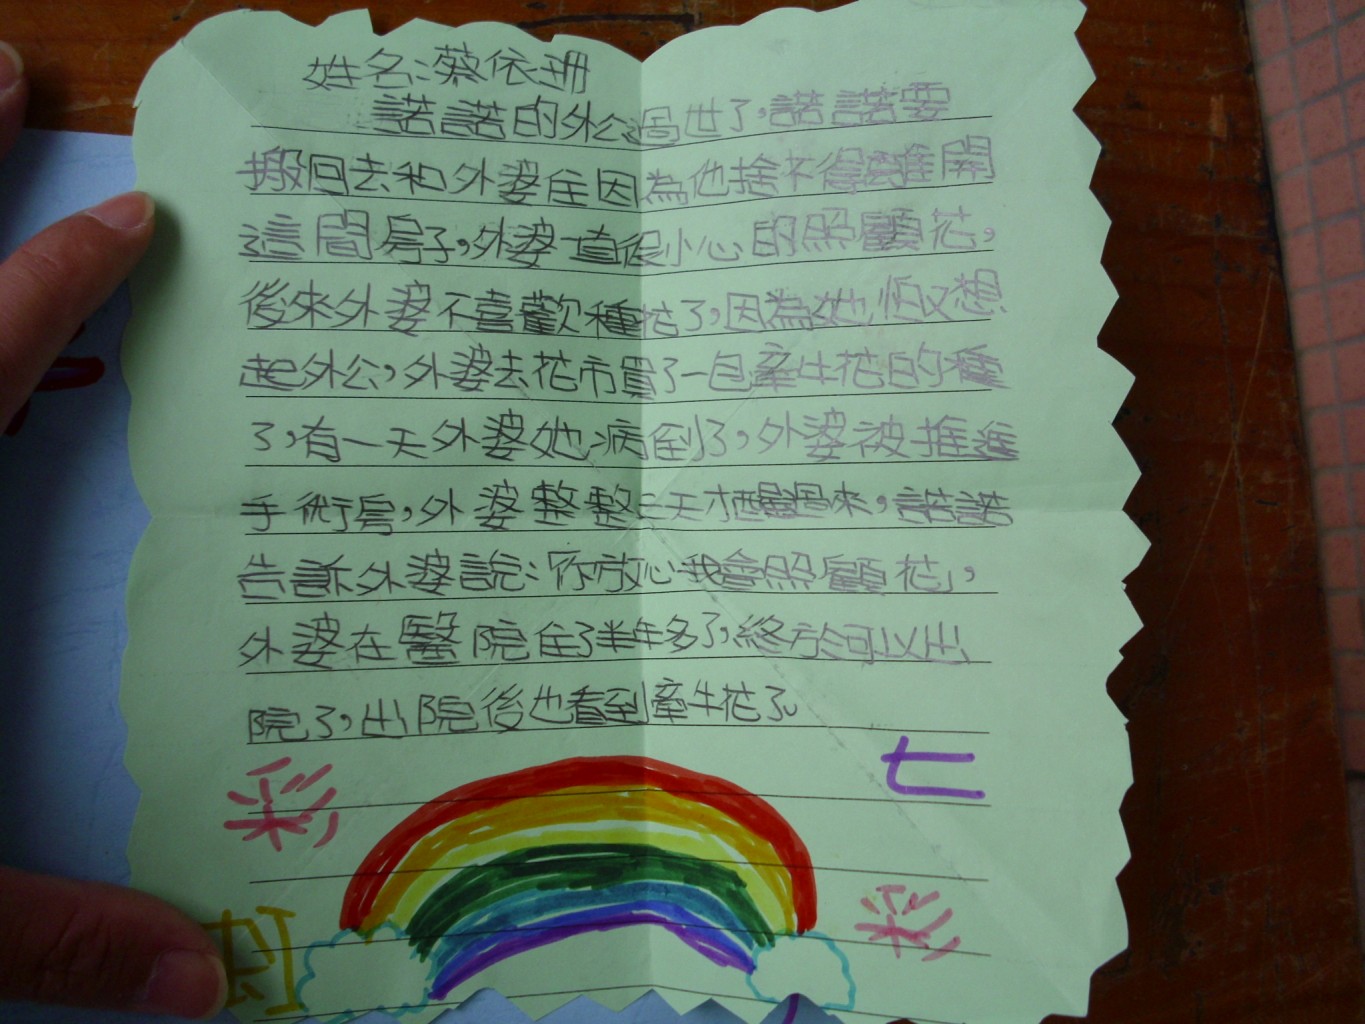 姓名:蔡依珊
諾諾的外公過世了,諾諾要
搬回去和外婆住因為他捨不得離開
這間房子,外婆一直很小心的照顧花,
後來外婆不喜歡種花了,因為她怕又想
起外公,外婆去花市買了一包牽牛花的種
子,有一天外婆她病倒了,外婆被推進
手術房,外婆整整三天才醒過來,諾諾
告訴外婆說:「你放心我會照顧花」,
外婆在醫院住了半年多了,終於可以出
院了,出院後也看到牽牛花了。
七
彩
彩
虹